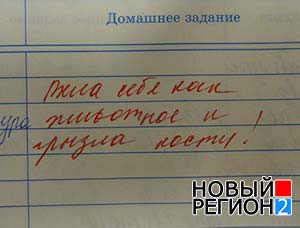 Домашнее задание
Вела себя как
ура животное и
грызла косту!
НОВЫЙ
РЕГИОН 2